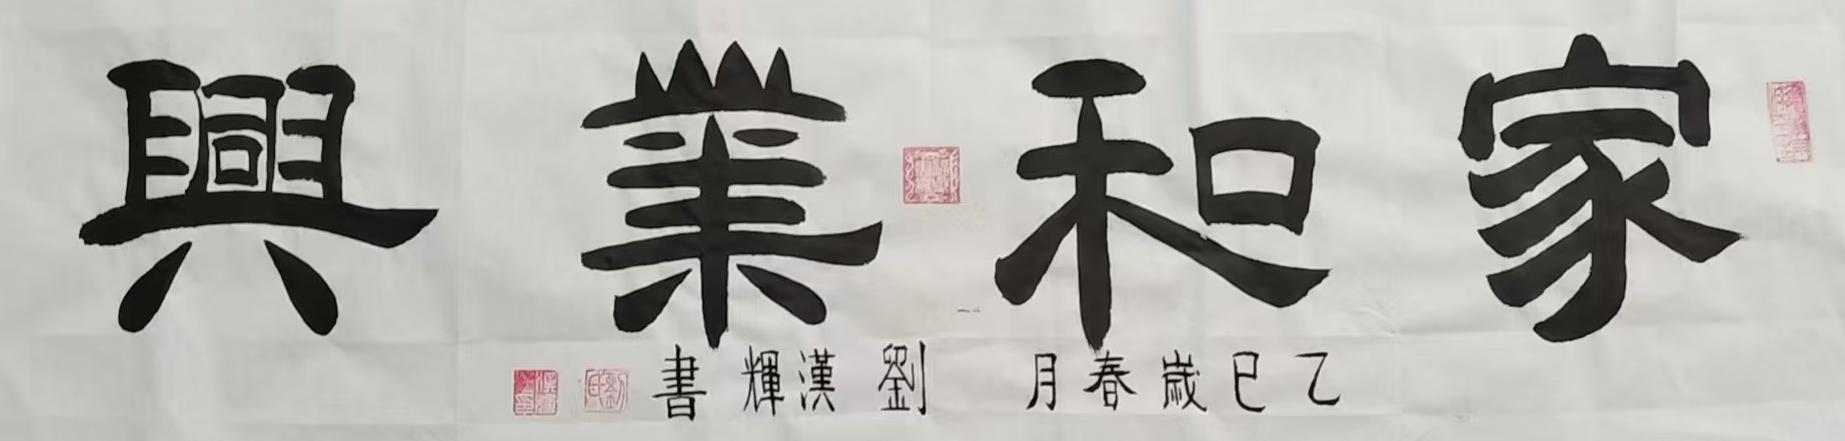 家和業興
乙巳歲春月 劉漢輝書